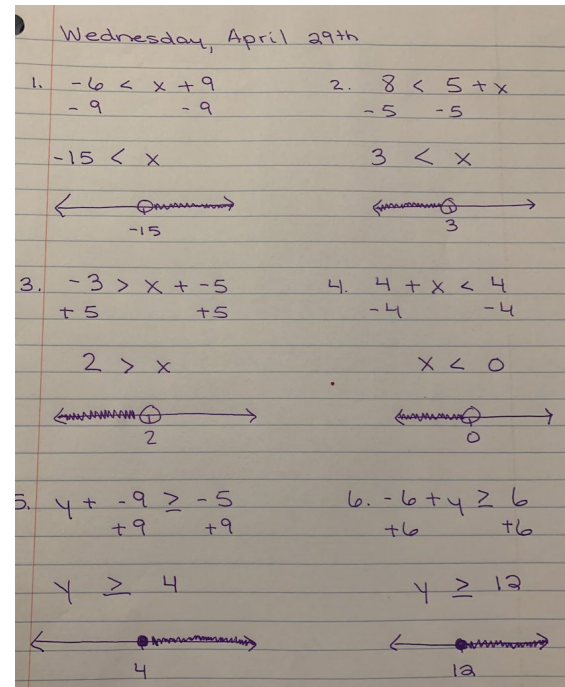 Wednesday, April 29th
1. -6 < x + 9
- 9 - 9
-15 < x
-15
2. 8 < 5 + x
-5 -5
3 < x
3
3. -3 > x + -5
+5 +5
2 > x
2
4. 4 + x < 4
-4 -4
x < 0
0
5. y + -9 ≥ -5
+9 +9
y ≥ 4
4
6. -6 + y ≥ 6
+6 +6
y ≥ 12
12